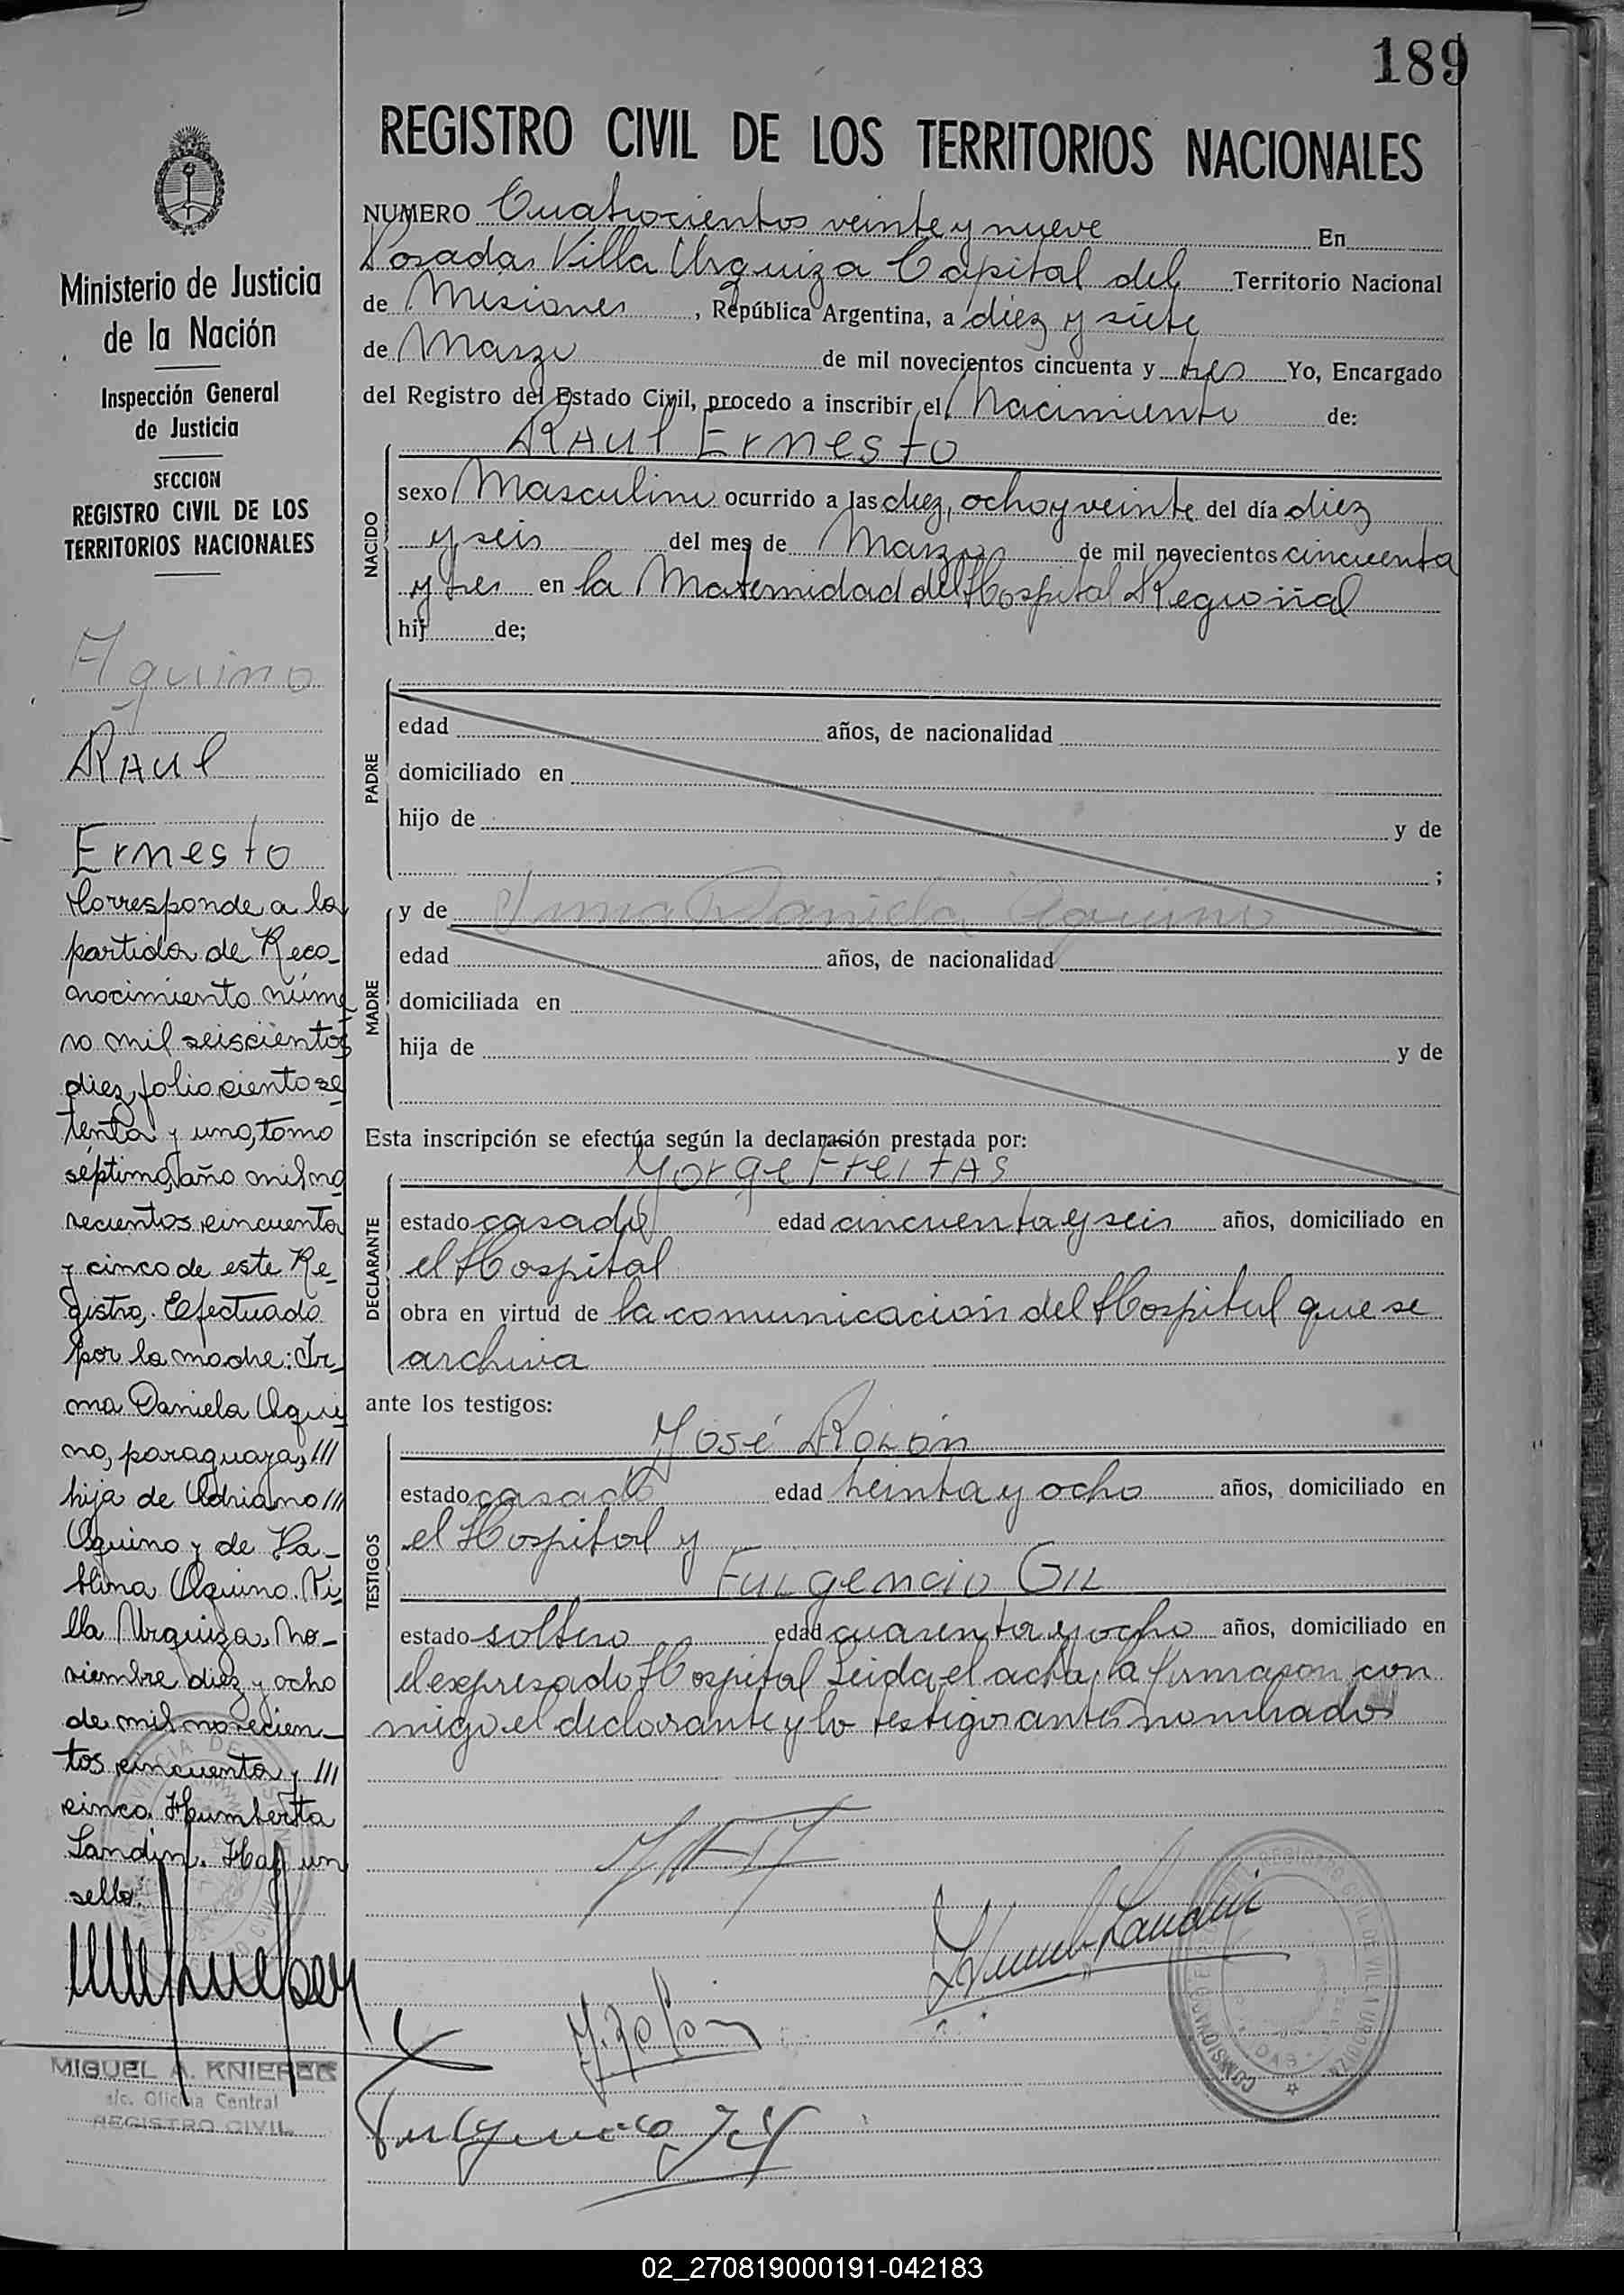 189
REGISTRO CIVIL DE LOS TERRITORIOS NACIONALES
Ministerio de Justicia
de la Nación
Inspección General
de Justicia
SECCION
REGISTRO CIVIL DE LOS
TERRITORIOS NACIONALES
Aquino
Raul
Ernesto
Corresponde a la
partida de Reco-
nocimiento núme
ro mil seiscientos
diez, folio ciento se
tenta y uno, tomo
séptimo, año mil no
vecientos cincuenta
y cinco de este Re-
gistro. Efectuado
por la madre: Ir-
ma Daniela Aqui
no, paraguaya, ///
hija de Adriano ///
Aquino y de
Aquino. Vi-
lla Urquiza, No-
viembre diez y ocho
de mil novecien-
tos cincuenta y ///
cinco. Humberto
Landin. Hay un
sello.
MIGUEL A. KNIEPER
a/c. Oficina Central
REGISTRO CIVIL
NUMERO Cuatrocientos veinte y nueve En
Posadas Villa Urquiza Capital del Territorio Nacional
de Misiones, República Argentina, a diez y siete
de Marzo de mil novecientos cincuenta y tres Yo, Encargado
del Registro del Estado Civil, procedo a inscribir el Nacimiento de:
NACIDO
Raul Ernesto
sexo Masculino ocurrido a las diez, ocho y veinte del día diez
y seis del mes de Marzo de mil novecientos cincuenta
y tres en la Maternidad del Hospital Regional
hij de;
PADRE
edad años, de nacionalidad
domiciliado en
hijo de y de
;
MADRE
y de Irma Daniela Aquino
edad años, de nacionalidad
domiciliada en
hija de y de
Esta inscripción se efectúa según la declaración prestada por:
DECLARANTE
Jorge Freitas
estado casado edad cincuenta y seis años, domiciliado en
el Hospital
obra en virtud de la comunicación del Hospital que se
archiva
ante los testigos:
TESTIGOS
José Rolón
estado casado edad treinta y ocho años, domiciliado en
el Hospital y
Fulgencio Gil
estado soltero edad cuarenta y ocho años, domiciliado en
el expresado Hospital Leida el acta, la firmaron con
migo el declarante y lo testigos antes nombrados
Humb Landin
J. Rolon
Fulgencio Gil
02_270819000191-042183